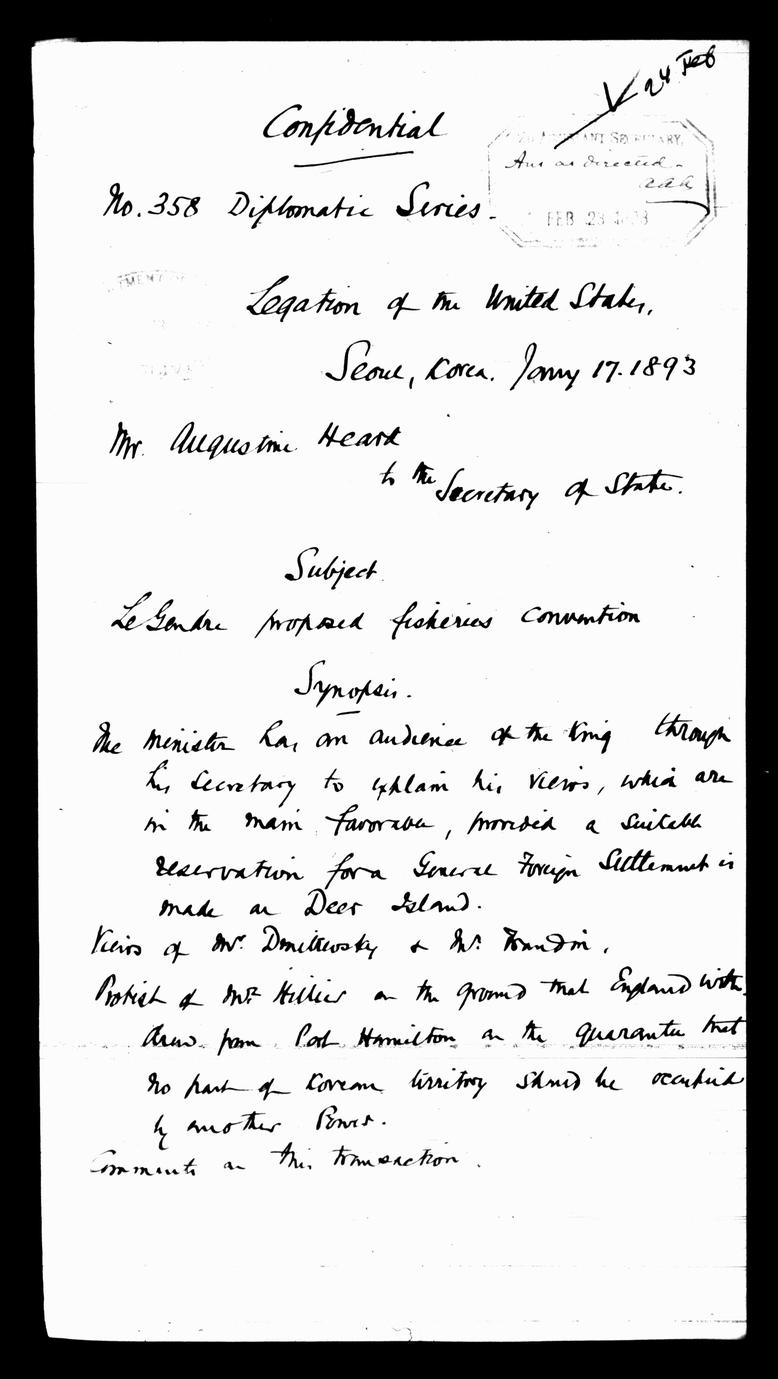 24 Feb
Confidential
ASSISTANT SECRETARY,
Ans as directed
aaa
FEB 23 1893
No. 358 Diplomatic Series.
Legation of the United States,
Seoul, Korea. Jany 17. 1893
Mr. Augustine Heard
to the Secretary of State.
Subject
LeGendre proposed fisheries convention
Synopsis.
The Minister has an audience of the King through
his Secretary to explain his views, which are
in the main favorable, provided a suitable
reservation for a General Foreign Settlement is
made on Deer Island.
Views of Mr. Dmitrevsky & Mr. Frandin.
Protest of Mr. Hillier on the ground that England with-
drew from Port Hamilton on the guarantee that
no part of Korean territory should be occupied
by another Power.
Comments on this transaction.